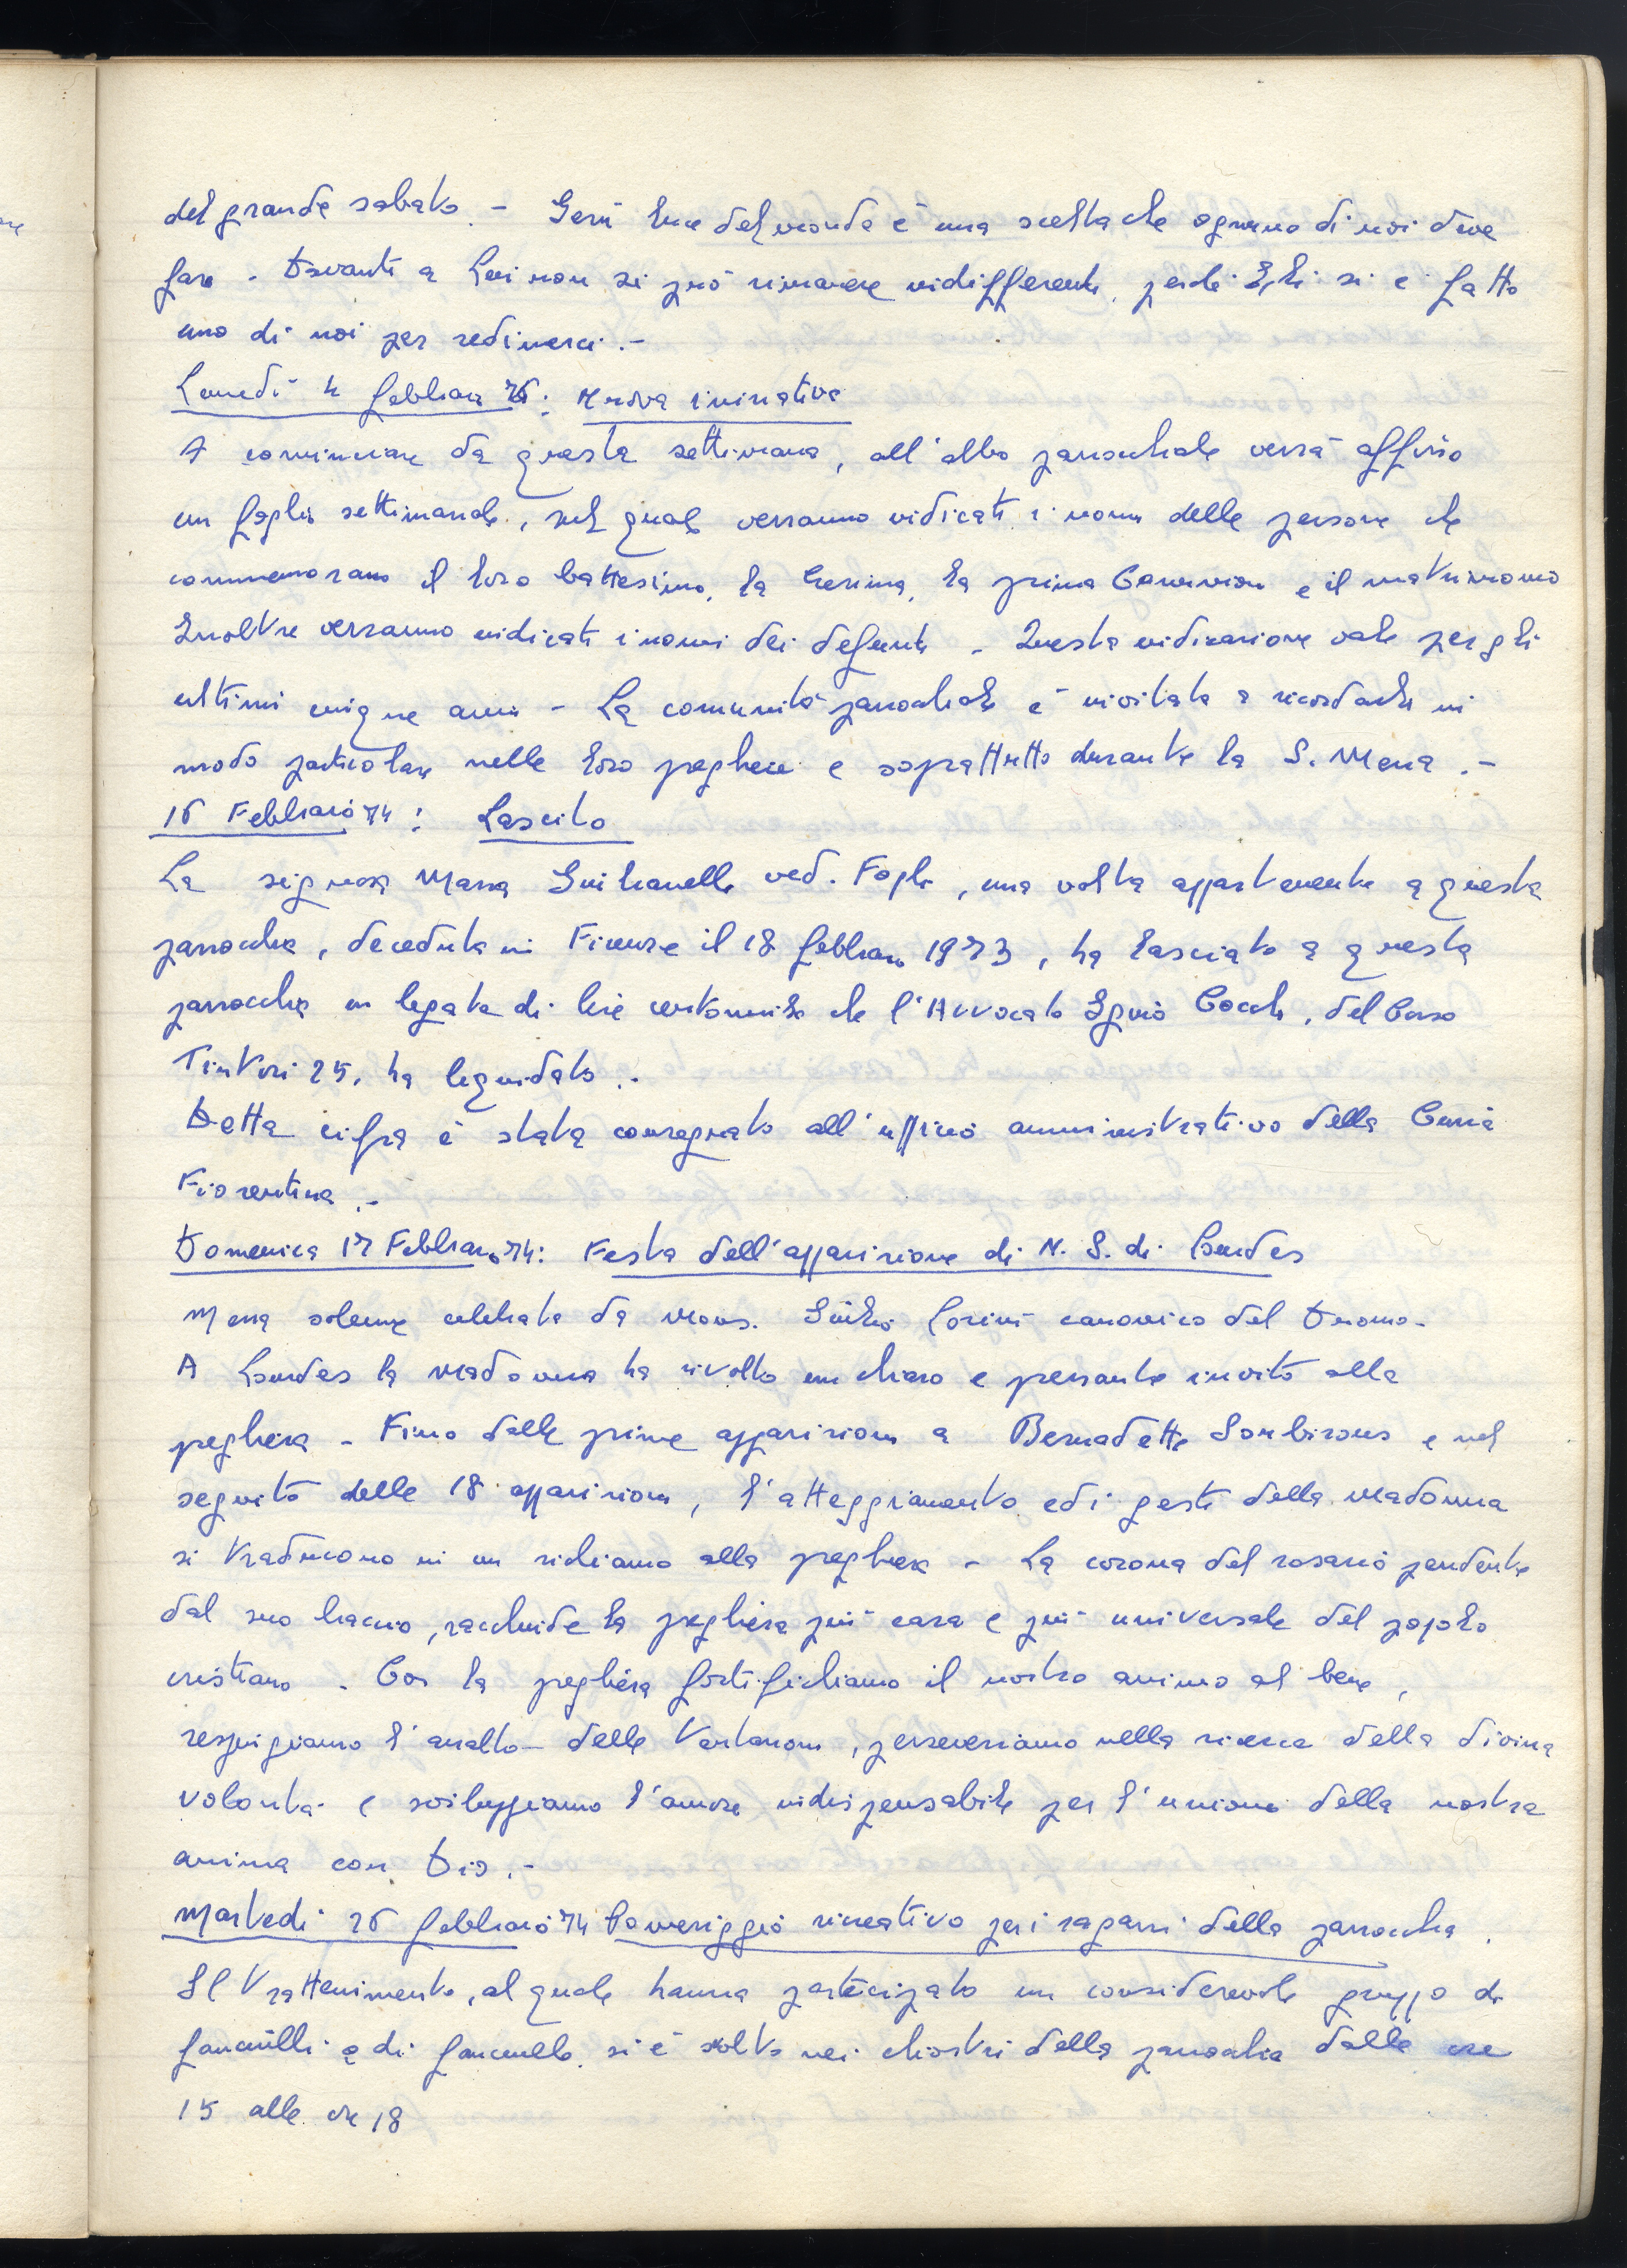 del grande sabato. - Gesù luce del mondo è una scelta che ognuno di noi deve
fare - Davanti a Lui non si può rimanere indifferenti, perché Egli si è fatto
uno di noi per redimerci. -
Lunedì 4 febbraio : Nuova iniziativa
A cominciare da questa settimana, all'albo parrocchiale verrà affisso
un foglio settimanale, sul quale verranno indicati i nomi delle persone che
commemorano il loro battesimo, la Cresima, la prima Comunione e il matrimonio
Inoltre verranno indicati i nomi dei defunti - Questa indicazione vale per gli
ultimi cinque anni - La comunità parrocchiale è invitata a ricordarli in
modo particolare nelle loro preghiere e soprattutto durante la S. Messa. -
16 Febbraio 74: Lascito
La signora Maria ved. Fogli, una volta appartenente a questa
parrocchia, deceduta in Firenze il 18 febbraio 1973, ha lasciato a questa
parrocchia un legato di lire centomila che l'Avvocato Cocchi, del Corso
Tintori 25, ha liquidato. -
Detta cifra è stata consegnato all'ufficio amministrativo della Curia
Fiorentina. -
Domenica 17 Febbraio 74: Festa dell'apparizione di N. S. di Lourdes
Messa solenne celebrata da Mons. Giulio Lorini canonico del Duomo -
A Lourdes la Madonna ha rivolto un chiaro e pressante invito alla
preghiera - Fino dalle prime apparizioni a Bernadette Soubirous e nel
seguito delle 18 apparizioni, l'atteggiamento ed i gesti della Madonna
si traducono in un richiamo alla preghiera - La corona del rosario pendente
dal suo braccio, racchiude la preghiera più cara e più universale del popolo
cristiano - Con la preghiera fortifichiamo il nostro animo al bene,
respingiamo l'assalto delle tentazioni, perseveriamo nella ricerca della divina
volontà e sviluppiamo l'amore indispensabile per l'unione della nostra
anima con Dio. -
Martedì 26 febbraio 74 Pomeriggio ricreativo per i ragazzi della parrocchia.
Il trattenimento, al quale hanno partecipato un considerevole gruppo di
fanciulli e di fanciulle, si è svolto nei chiostri della parrocchia dalle ore
15 alle ore 18